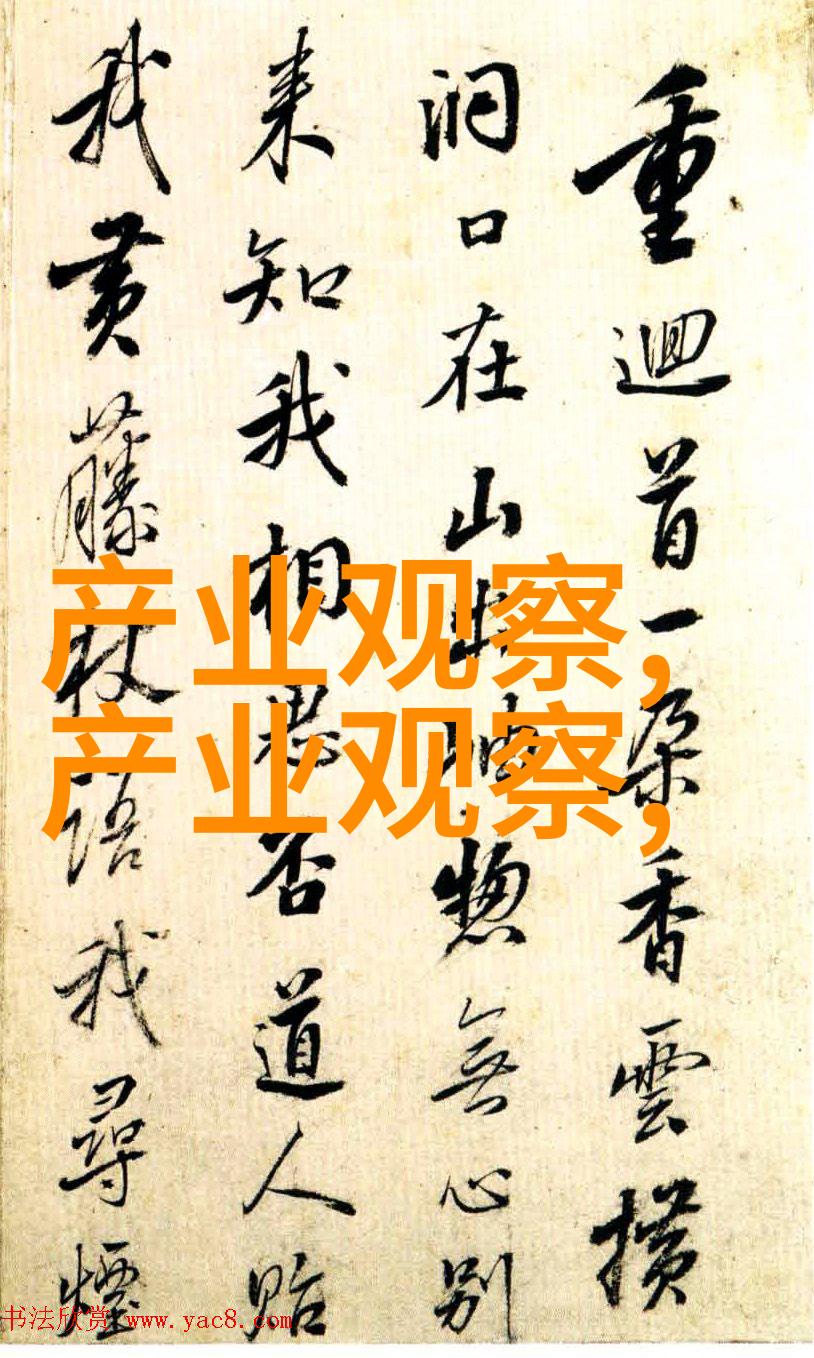 重迴首一朵香雲横
洞口在山出岫惣無心別
来知我相思否道人貽
我黄藤杖語我尋煙
产业观察,
产业观察,
书法欣赏 www.yac8.com